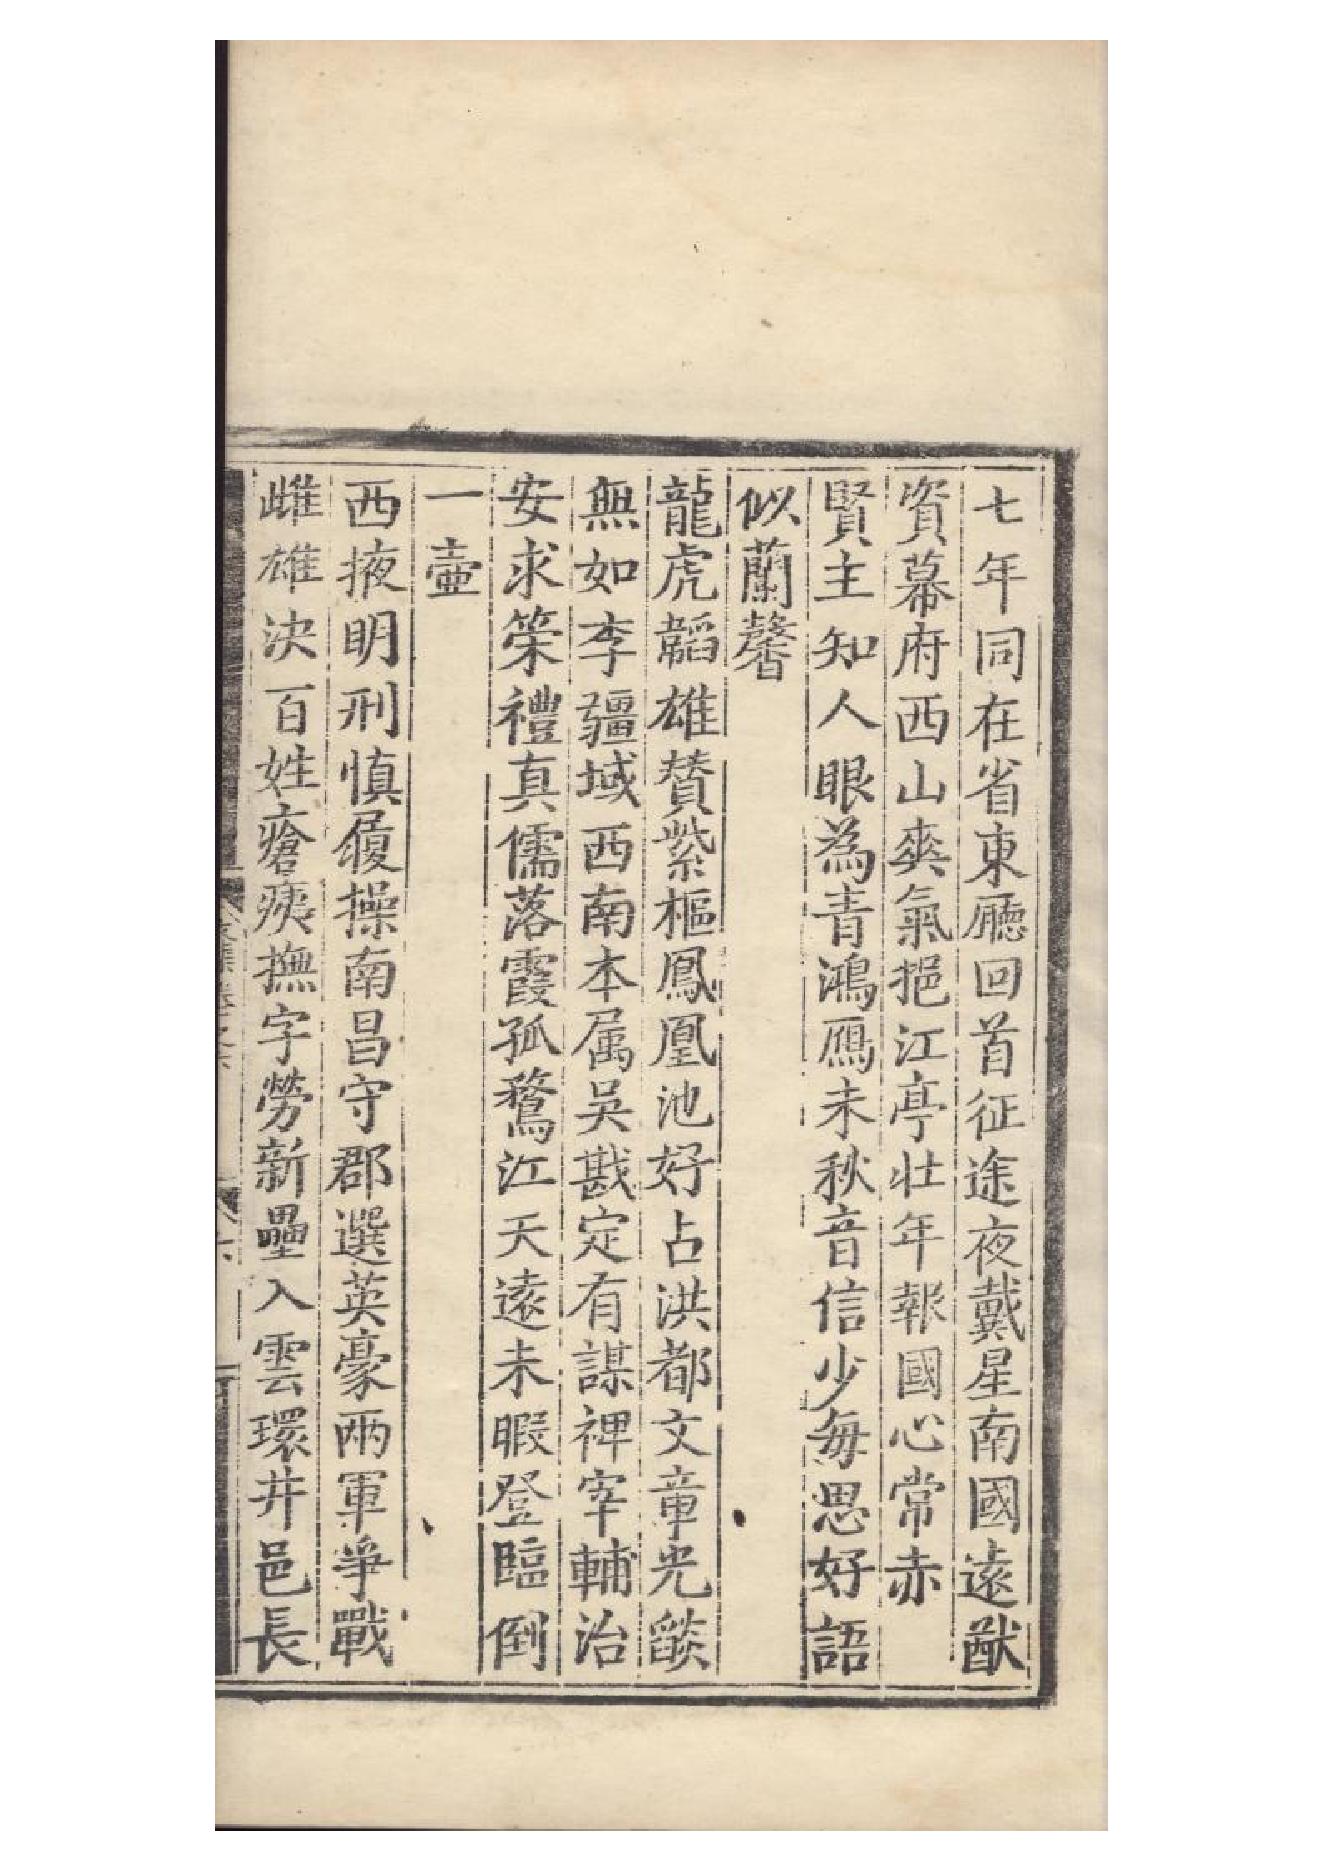 七年同在省東廳回首征途夜戴星南國遠猷
資幕府西山爽氣挹江亭壯年報國心常赤
賢主知人眼為青鴻鴈未秋音信少每思好語
似蘭馨
龍虎韜雄賛紫樞鳳凰池好占洪都文章光燄
無如李疆域西南本属吳戡定有謀裨宰輔治
安求策禮真儒落霞孤鶩江天遠未暇登臨倒
一壺
西掖明刑慎履操南昌守郡選英豪兩軍爭戰
雌雄决百姓瘡痍撫字勞新壘入雲環井邑長